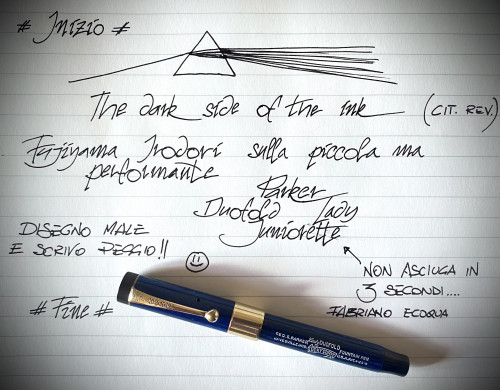 # Inizio #
The dark side of the ink (CIT. REV.)
Fujiyama Irodori sulla piccola ma
performante
Parker
Duofold Lady
Juniorette
DISEGNO MALE
E SCRIVO PEGGIO!!
NON ASCIUGA IN
3 SECONDI....
# Fine #
FABRIANO ECOQUA
GEO. S. PARKER DUOFOLD FOUNTAIN PEN